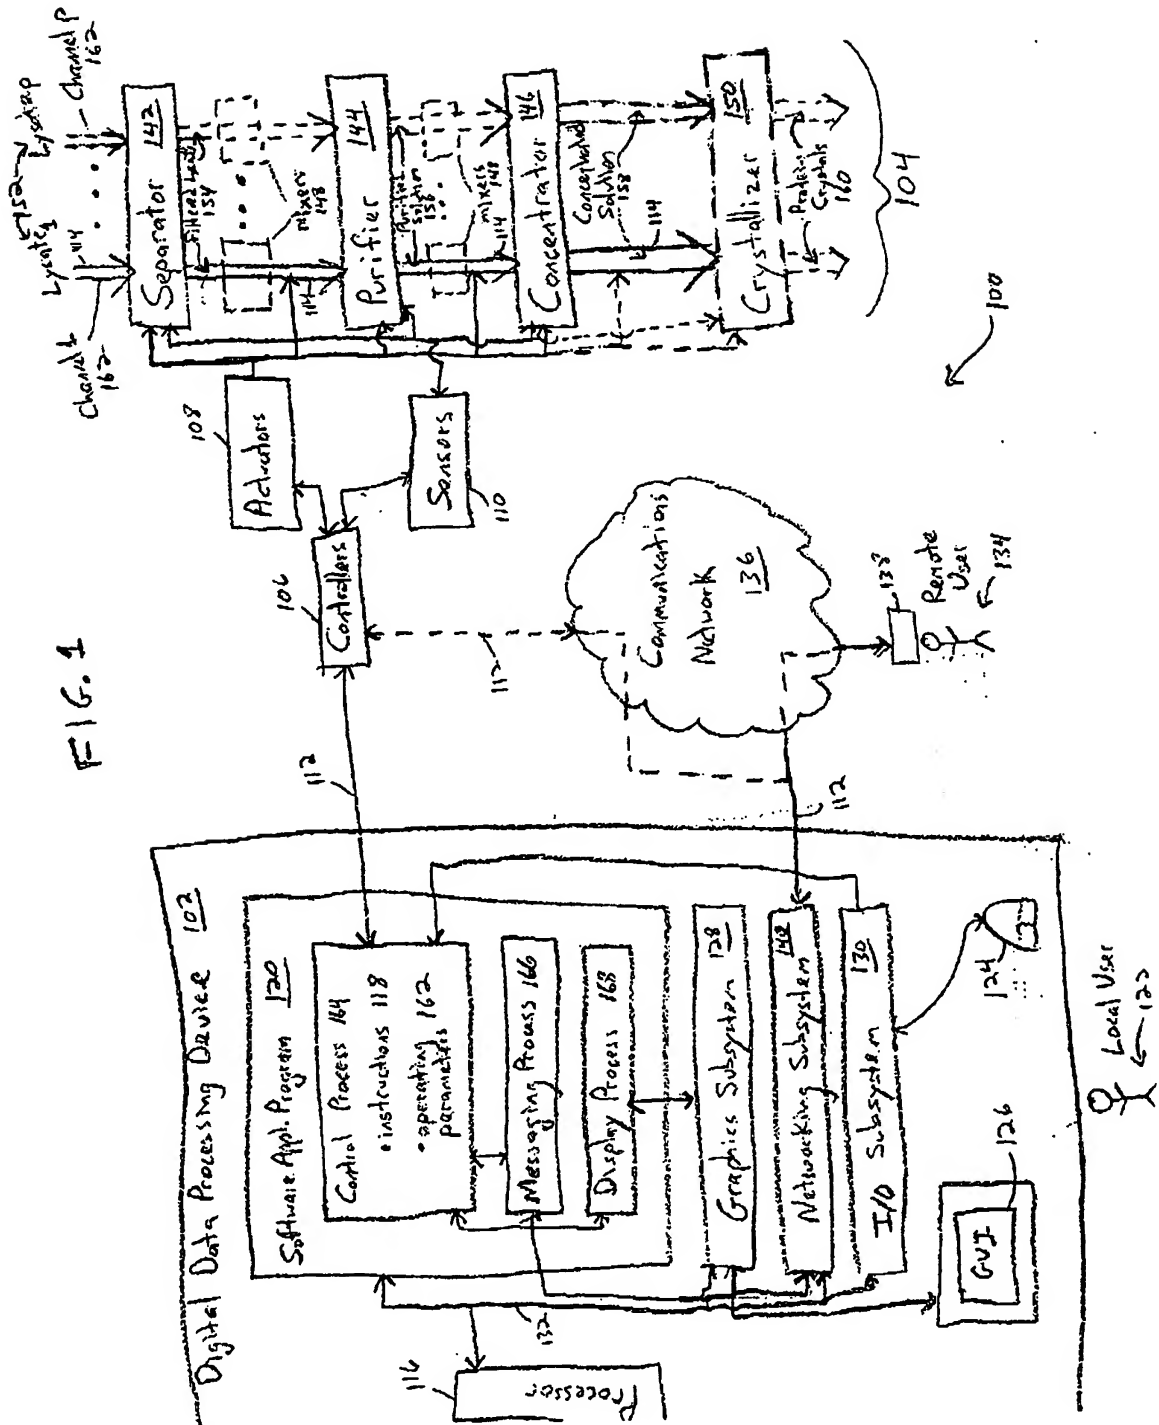 FIG. 1
Digital Data Processing Device 102
Software Appl. Program 120
Control Process 164
• instructions 118
• operating 162
parameters
Messaging Process 166
Display Process 168
Graphics Subsystem 128
Networking Subsystem 140
I/O Subsystem 130
132
116
Processor
GUI
126
124
Local User
122
112
112
112
106
Controllers
108
Actuators
Sensors
110
Communications
Network
136
138
Remote
User
134
100
Channel 1
162
Lysate 1
114
152
Lysate p
Channel p
162
Separator 142
Filtered Lysate
154
mixers
148
114
Purifier 144
Purified
Solution
156
mixers
148
114
Concentrator 146
Concentrated
Solution
158
114
Crystallizer 150
Protein
Crystals
160
104